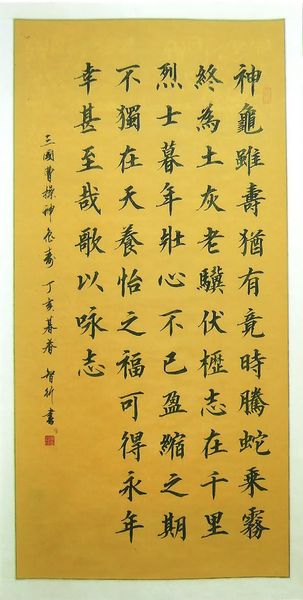 神龜雖壽猶有竟時騰蛇乘霧
終為土灰老驥伏櫪志在千里
烈士暮年壯心不已盈縮之期
不獨在天養怡之福可得永年
幸甚至哉歌以咏志
三國曹操神龜寿 丁亥暮春 智 書